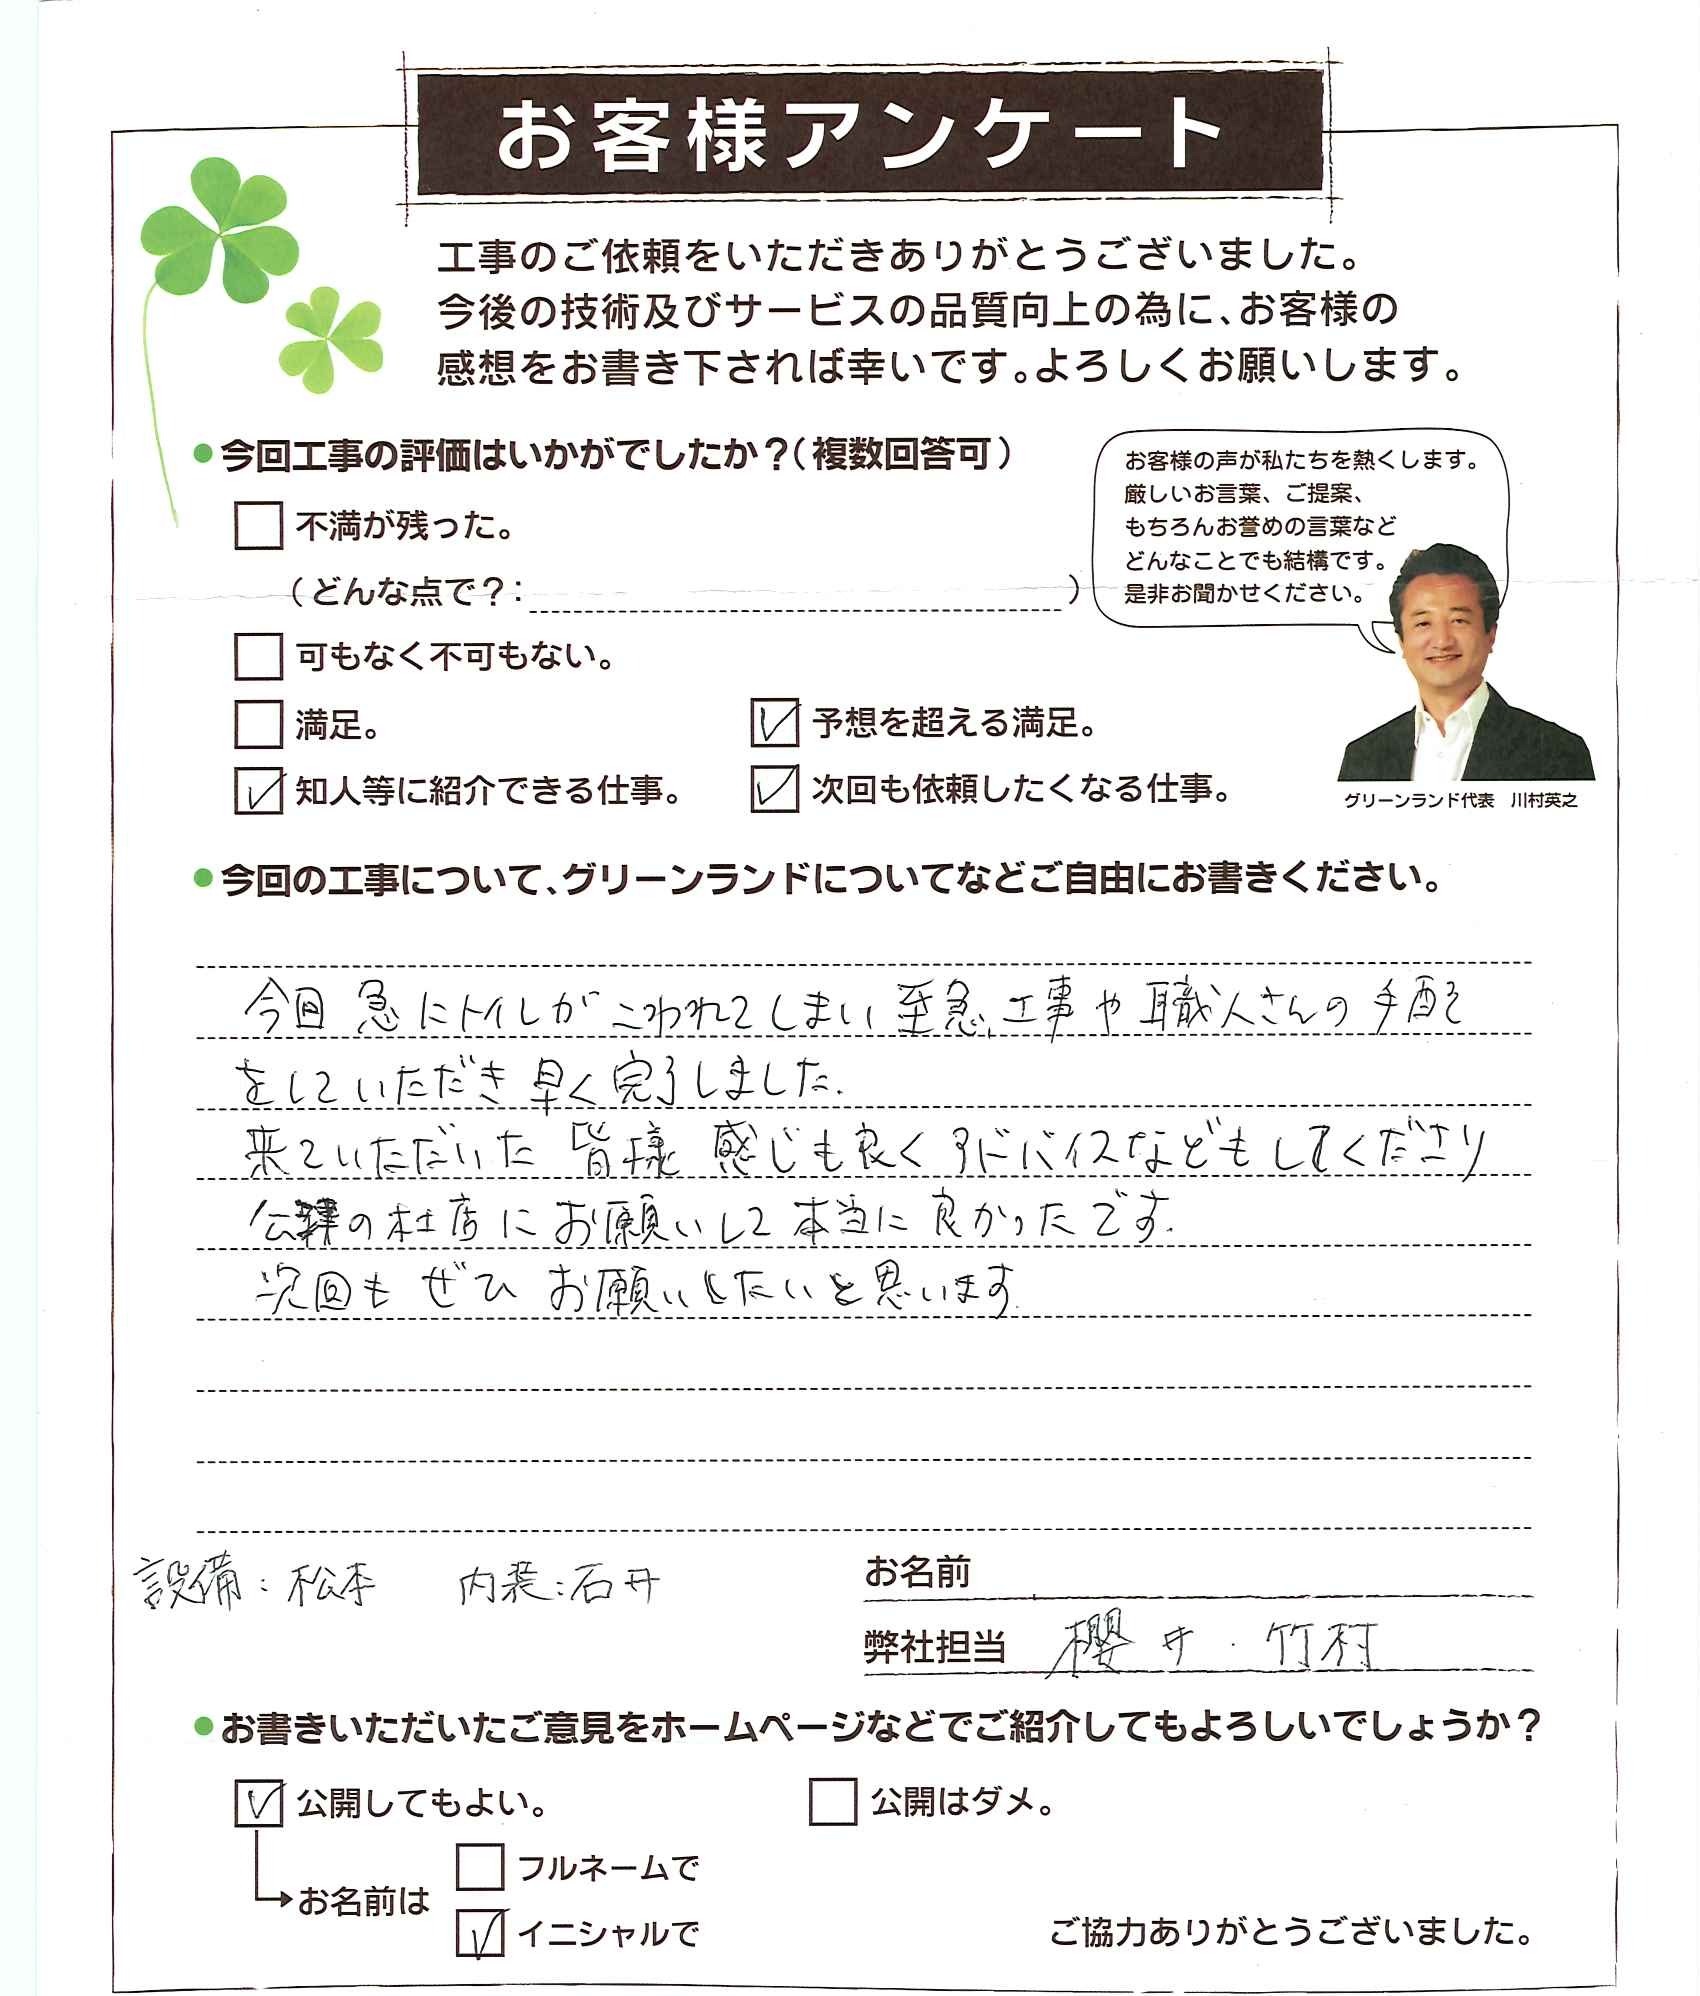 お客様アンケート
工事のご依頼をいただきありがとうございました。
今後の技術及びサービスの品質向上の為に、お客様の
感想をお書き下されば幸いです。よろしくお願いします。
●今回工事の評価はいかがでしたか？（複数回答可）
不満が残った。
（どんな点で？：　）
可もなく不可もない。
満足。
予想を超える満足。
知人等に紹介できる仕事。
次回も依頼したくなる仕事。
お客様の声が私たちを熱くします。
厳しいお言葉、ご提案、
もちろんお誉めの言葉など
どんなことでも結構です。
是非お聞かせください。
グリーンランド代表　川村英之
●今回の工事について、グリーンランドについてなどご自由にお書きください。
今回 急にトイレがこわれてしまい 至急、工事や職人さんの手配
をしていただき 早く完了しました。
来ていただいた 皆様 感じも良く アドバイスなどもしてくださり
の 店に お願いして 本当に 良かったです。
次回も ぜひ お願いしたいと思います。
設備：松本　内装：石井
お名前
弊社担当　櫻井・竹村
●お書きいただいたご意見をホームページなどでご紹介してもよろしいでしょうか？
公開してもよい。
公開はダメ。
お名前は
フルネームで
イニシャルで
ご協力ありがとうございました。